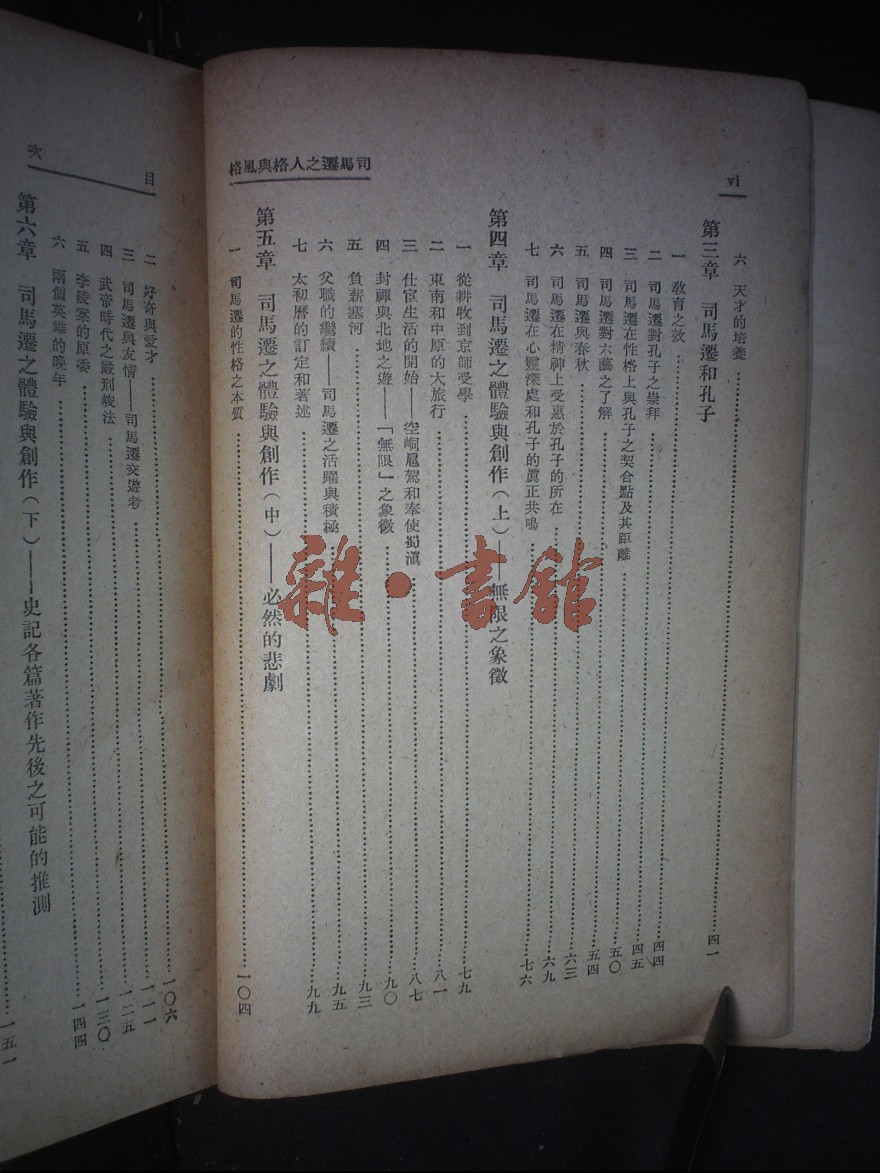 vi
司馬遷之人格與風格
六 天才的培養……四一
第三章 司馬遷和孔子
一 教育之效……四四
二 司馬遷對孔子之崇拜……四五
三 司馬遷在性格上與孔子之契合點及其距離……五〇
四 司馬遷對六藝之了解……五四
五 司馬遷與春秋……六三
六 司馬遷在精神上受惠於孔子的所在……六九
七 司馬遷在心靈深處和孔子的眞正共鳴……七六
第四章 司馬遷之體驗與創作(上)——無限之象徵
一 從耕牧到京師受學……七九
二 東南和中原的大旅行……八一
三 仕宦生活的開始——空峒扈駕和奉使蜀滇……八七
四 封禪與北地之遊——「無限」之象徵……九〇
五 負薪塞河……九三
六 父職的繼續——司馬遷之活躍與積極……九五
七 太初曆的訂定和著述……九九
第五章 司馬遷之體驗與創作(中)——必然的悲劇
一 司馬遷的性格之本質……一〇四
目次
二 好奇與愛才……一〇六
三 司馬遷與友情——司馬遷交遊考……一一一
四 武帝時代之嚴刑峻法……一二五
五 李陵案的原委……一三〇
六 兩個英雄的晚年……一四四
第六章 司馬遷之體驗與創作(下)——史記各篇著作先後之可能的推測
……一五一
雜·書館